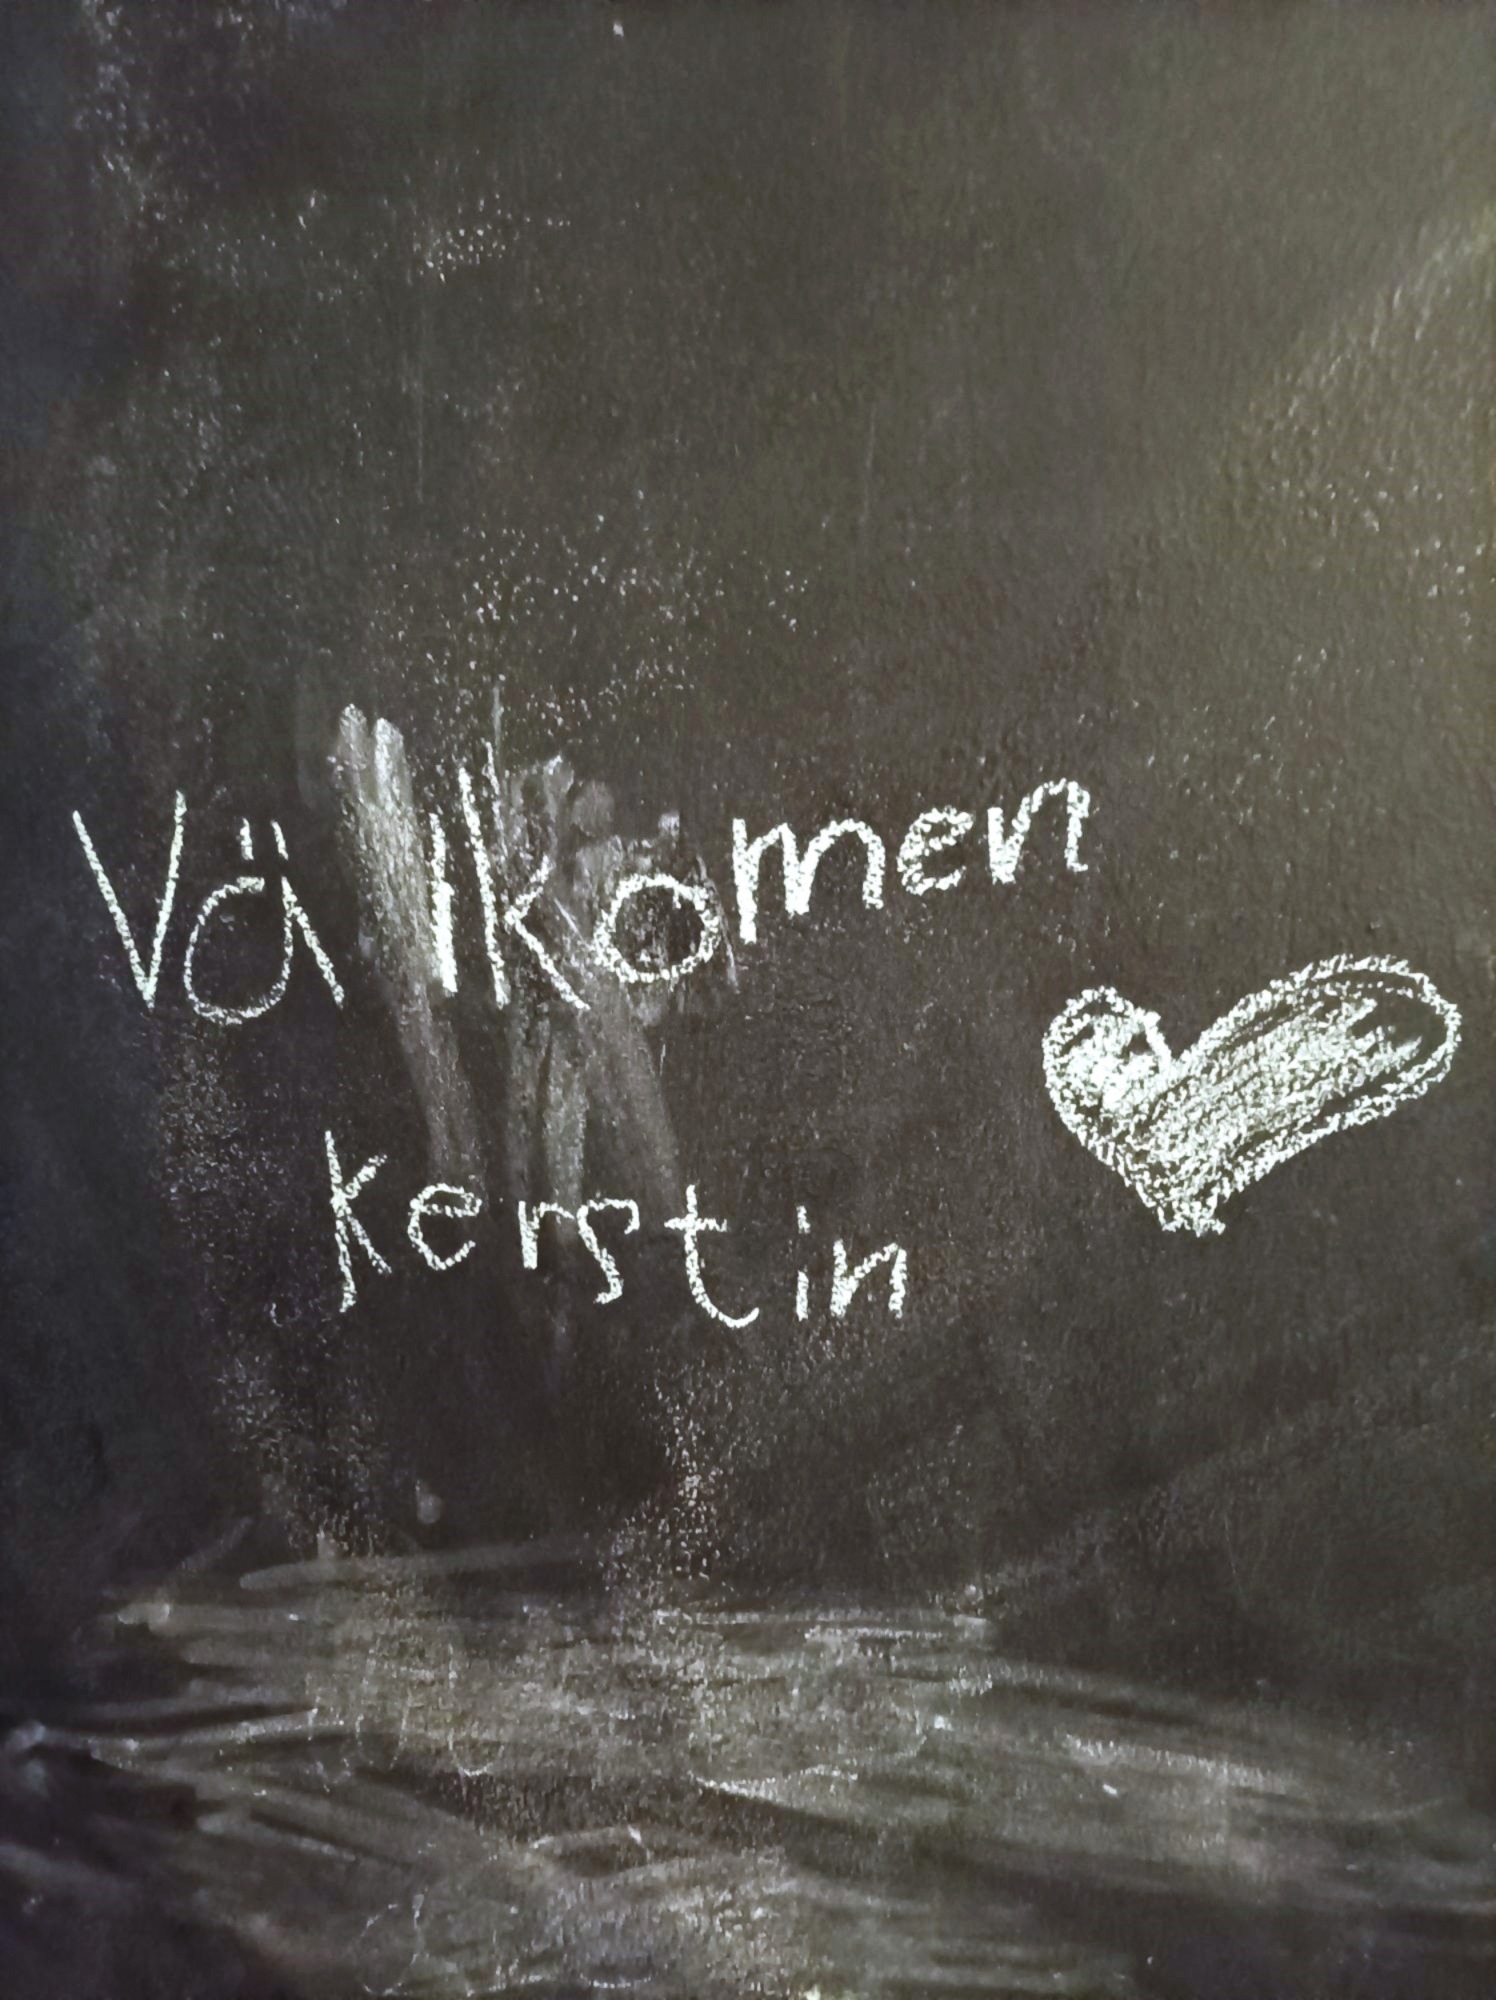 Välkomen
kerstin